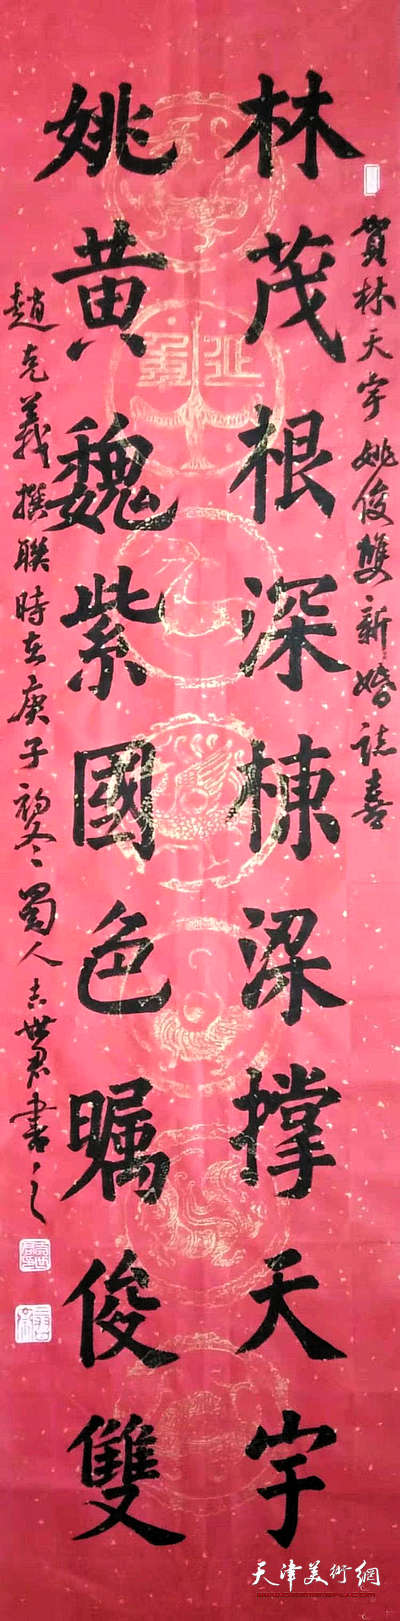 賀林天宇姚俊雙新婚誌喜
林茂根深棟梁撐天宇
姚黃魏紫國色矚俊雙
趙克義撰聯時在庚子初冬蜀人古世君書之
天津美術網